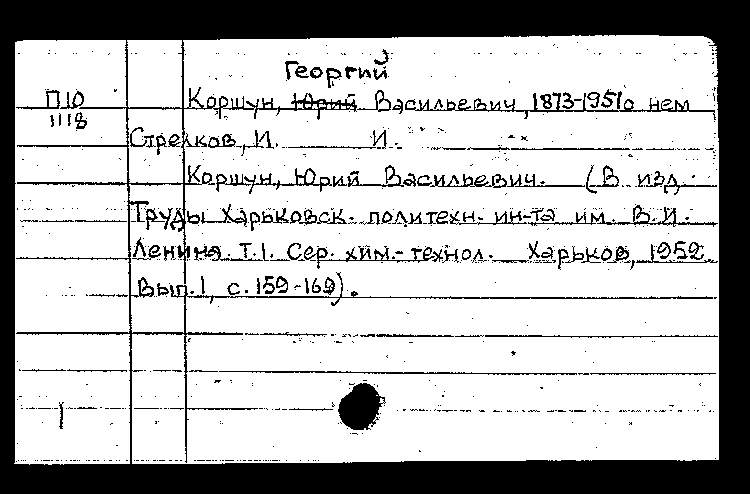 Георгий
П10 Коршун, Юрий Васильевич, 1873-1951 о нем
1118
Стрелков, И. И.
Коршун, Юрий Васильевич. (В изд.
Труды Харьковск. политехн. ин-та им. В.И.
Ленина. Т.1. Сер. хим.-технол. Харьков, 1952
Вып.1, с.159-169).
1